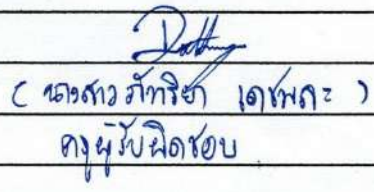 ( นางสาวภัทริยา เดชพละ )
ครูผู้รับผิดชอบ